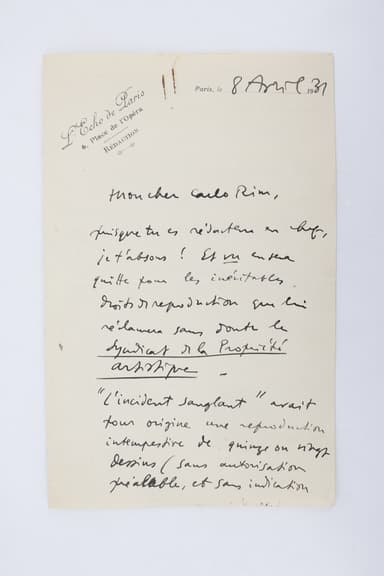 L'Echo de Paris
6, Place de l'Opéra
RÉDACTION
Paris, le 8 Avril 1931
Mon cher Carlo Rim,
puisque tu es rédacteur en chef,
je t'absous ! Et on en sera
quitte pour les inévitables
droits de reproduction que lui
réclamera sans doute le
Syndicat de la Propriété
artistique –
"L'incident sanglant" avait
pour origine une reproduction
intempestive de quinze ou vingt
dessins (sans autorisation
préalable, et sans indication